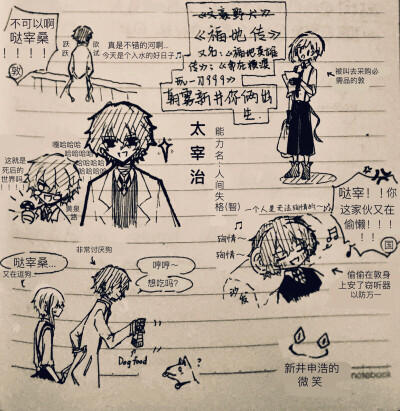 不可以啊
哒宰桑
！！！！
敦
跃跃欲试
真是不错的河啊…
今天是个入水的好日子♪
《文豪野犬》
《福地传》
又名：《福地英雄
传》；《
一刀999》
朝雾新井你俩出
生
被叫去采购必
需品的敦
嘎哈哈哈
哈哈哈哈
哈哈哈哈
哈哈哈
这就是
死后的
世界吗
！！！！
黄泉路
太宰治
能力名：人间失格(智)
哒宰！！你
这家伙又在
偷懒！！！
！
国
一个人是无法殉情的～♪
殉情～
殉情～
沙发
偷偷在敦身
上安了窃听器
以防万一
哒宰桑…
又在逗狗…
非常讨厌狗
哼哼～
想吃吗？
Dog food
?
新井申浩的
微 笑
notebook